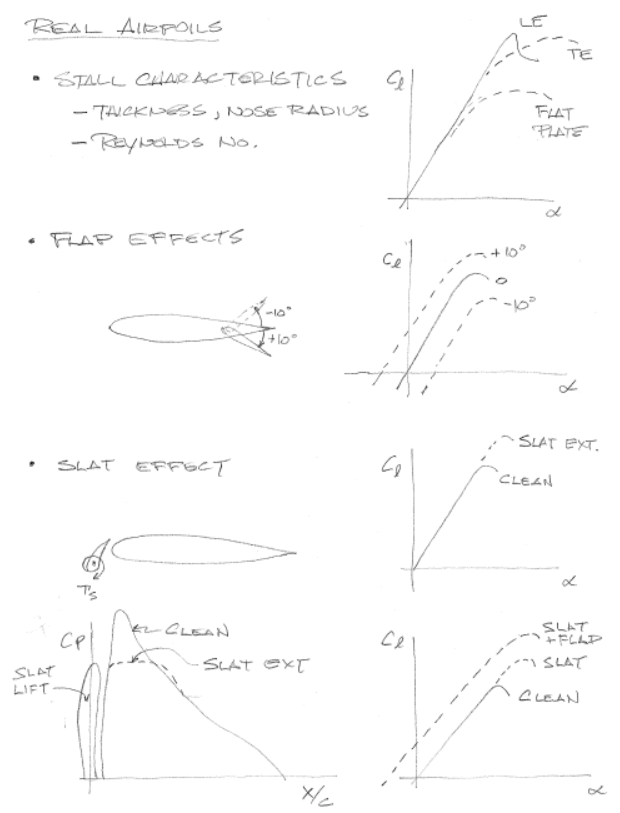 REAL AIRFOILS
• STALL CHARACTERISTICS
– THICKNESS, NOSE RADIUS
– REYNOLDS NO.
Cℓ
LE
TE
FLAT
PLATE
α
• FLAP EFFECTS
-10°
+10°
Cℓ
+10°
0
-10°
α
• SLAT EFFECT
Cℓ
SLAT EXT.
CLEAN
α
Γs
CP
CLEAN
SLAT EXT
SLAT
LIFT
X/c
Cℓ
SLAT
+FLAP
SLAT
CLEAN
α